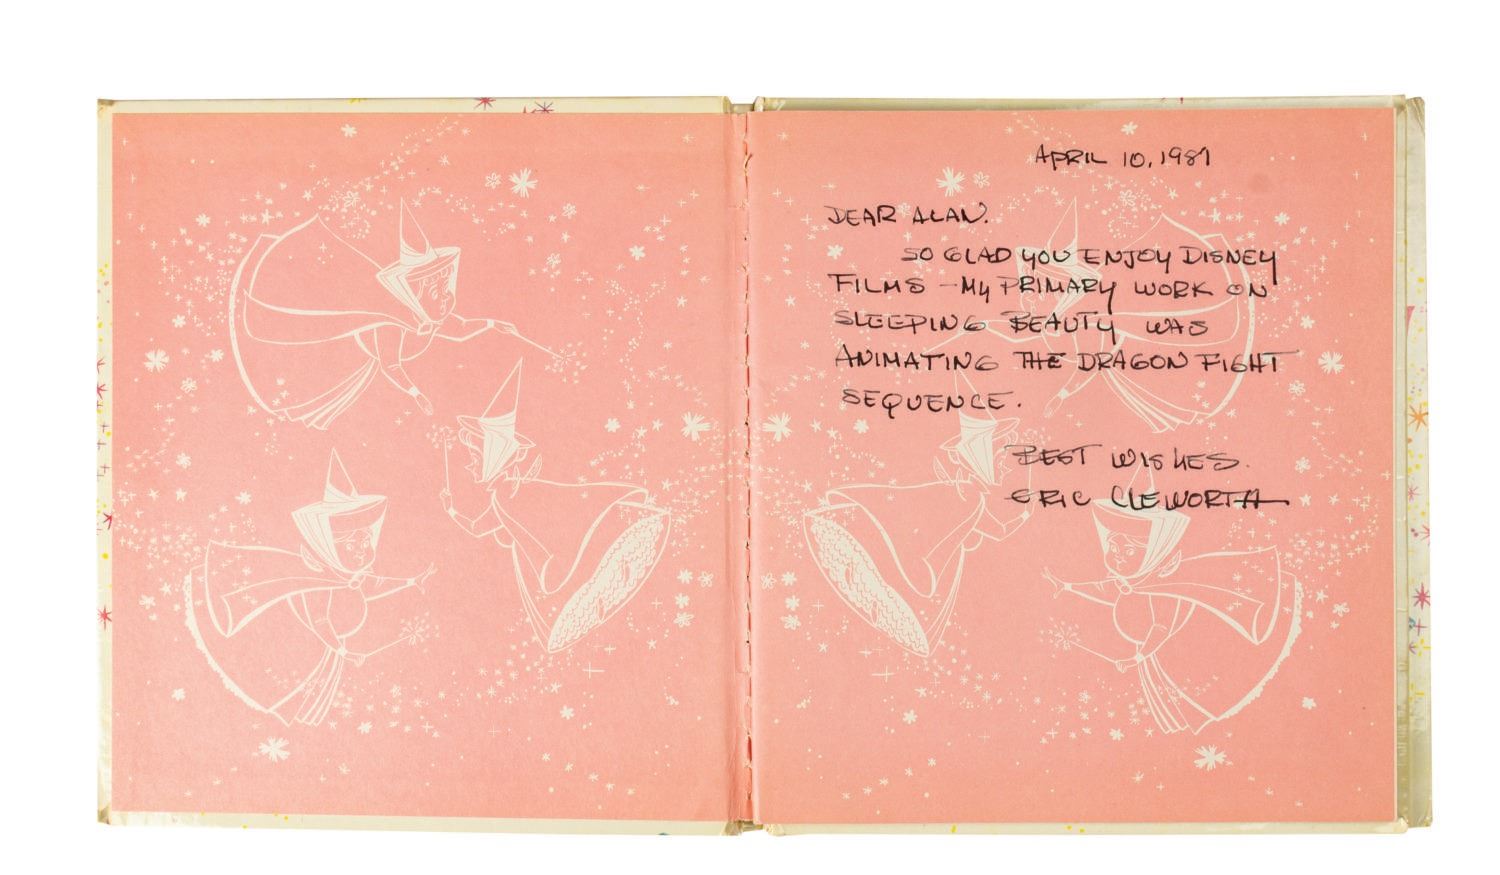 APRIL 10, 1987
DEAR ALAN.
SO GLAD YOU ENJOY DISNEY
FILMS - MY PRIMARY WORK ON
SLEEPING BEAUTY WAS
ANIMATING THE DRAGON FIGHT
SEQUENCE.
BEST WISHES.
ERIC CLEWORTH